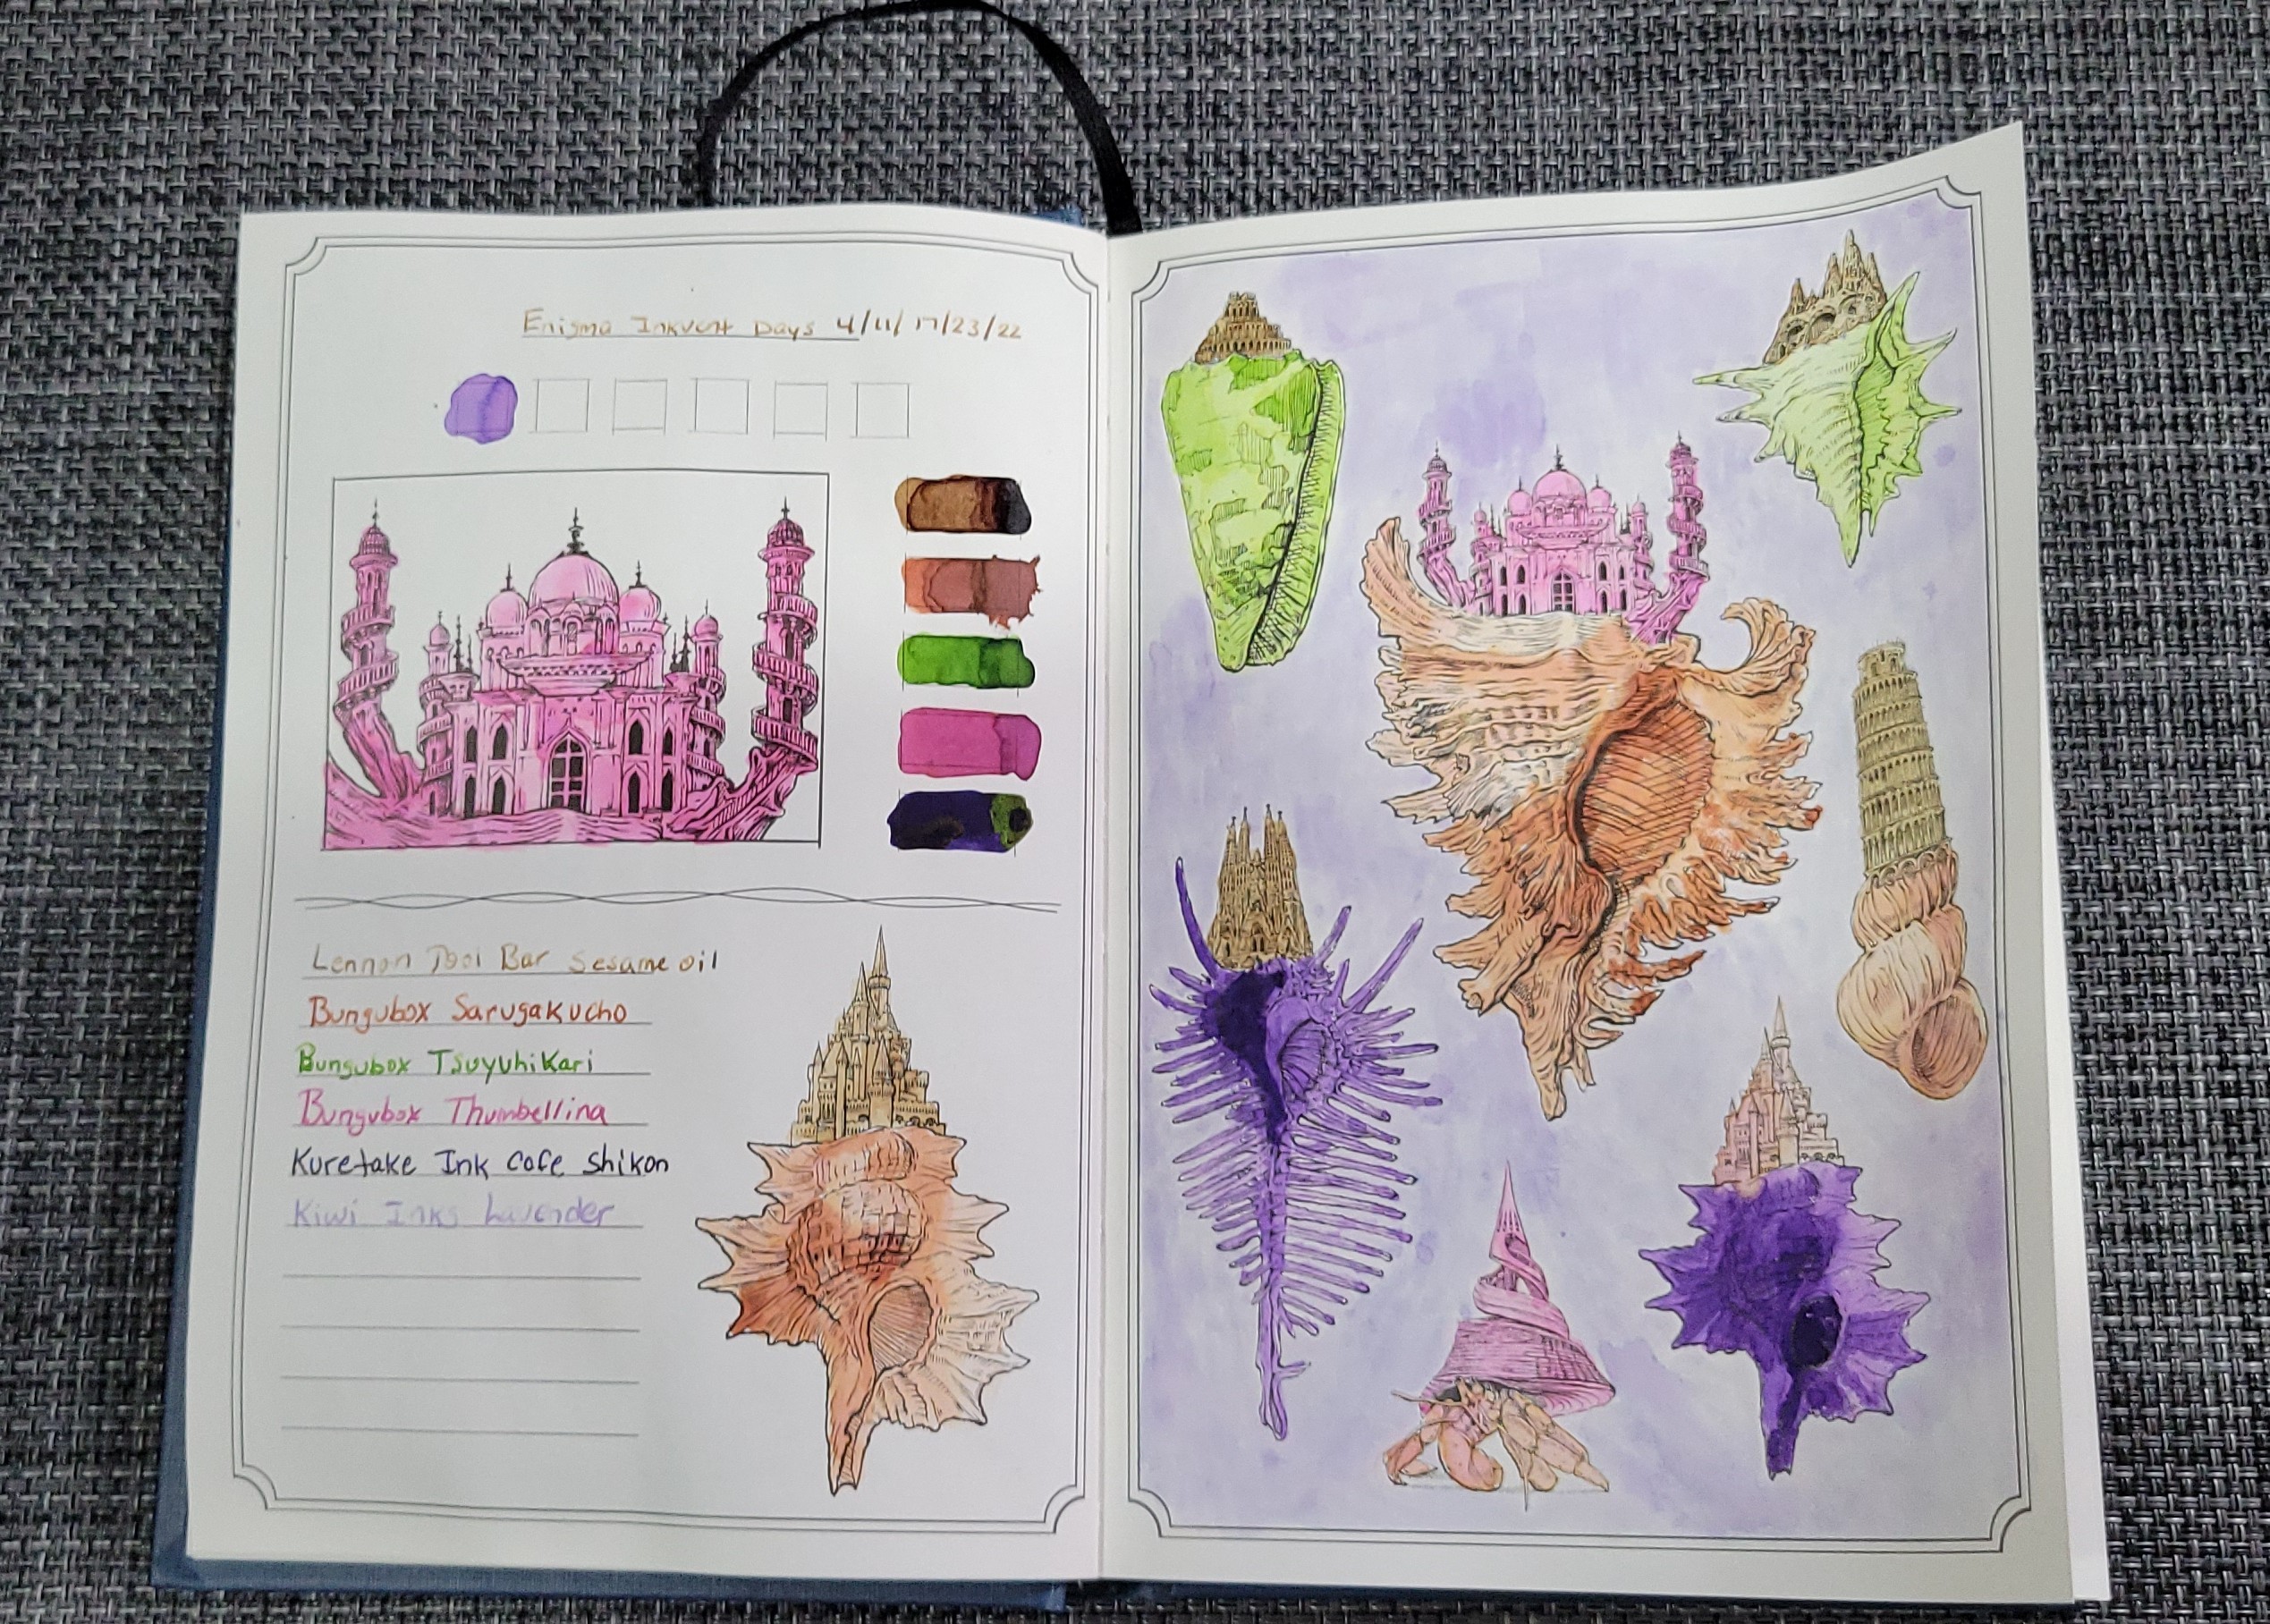 Enigma Inkvent Days 4/11/17/23/22
Lennon Tool Bar Sesame oil
Bungubox Sarugakucho
Bungubox Tsuyuhikari
Bungubox Thumbellina
Kuretake Ink Cafe Shikon
Kiwi Inks Lavender